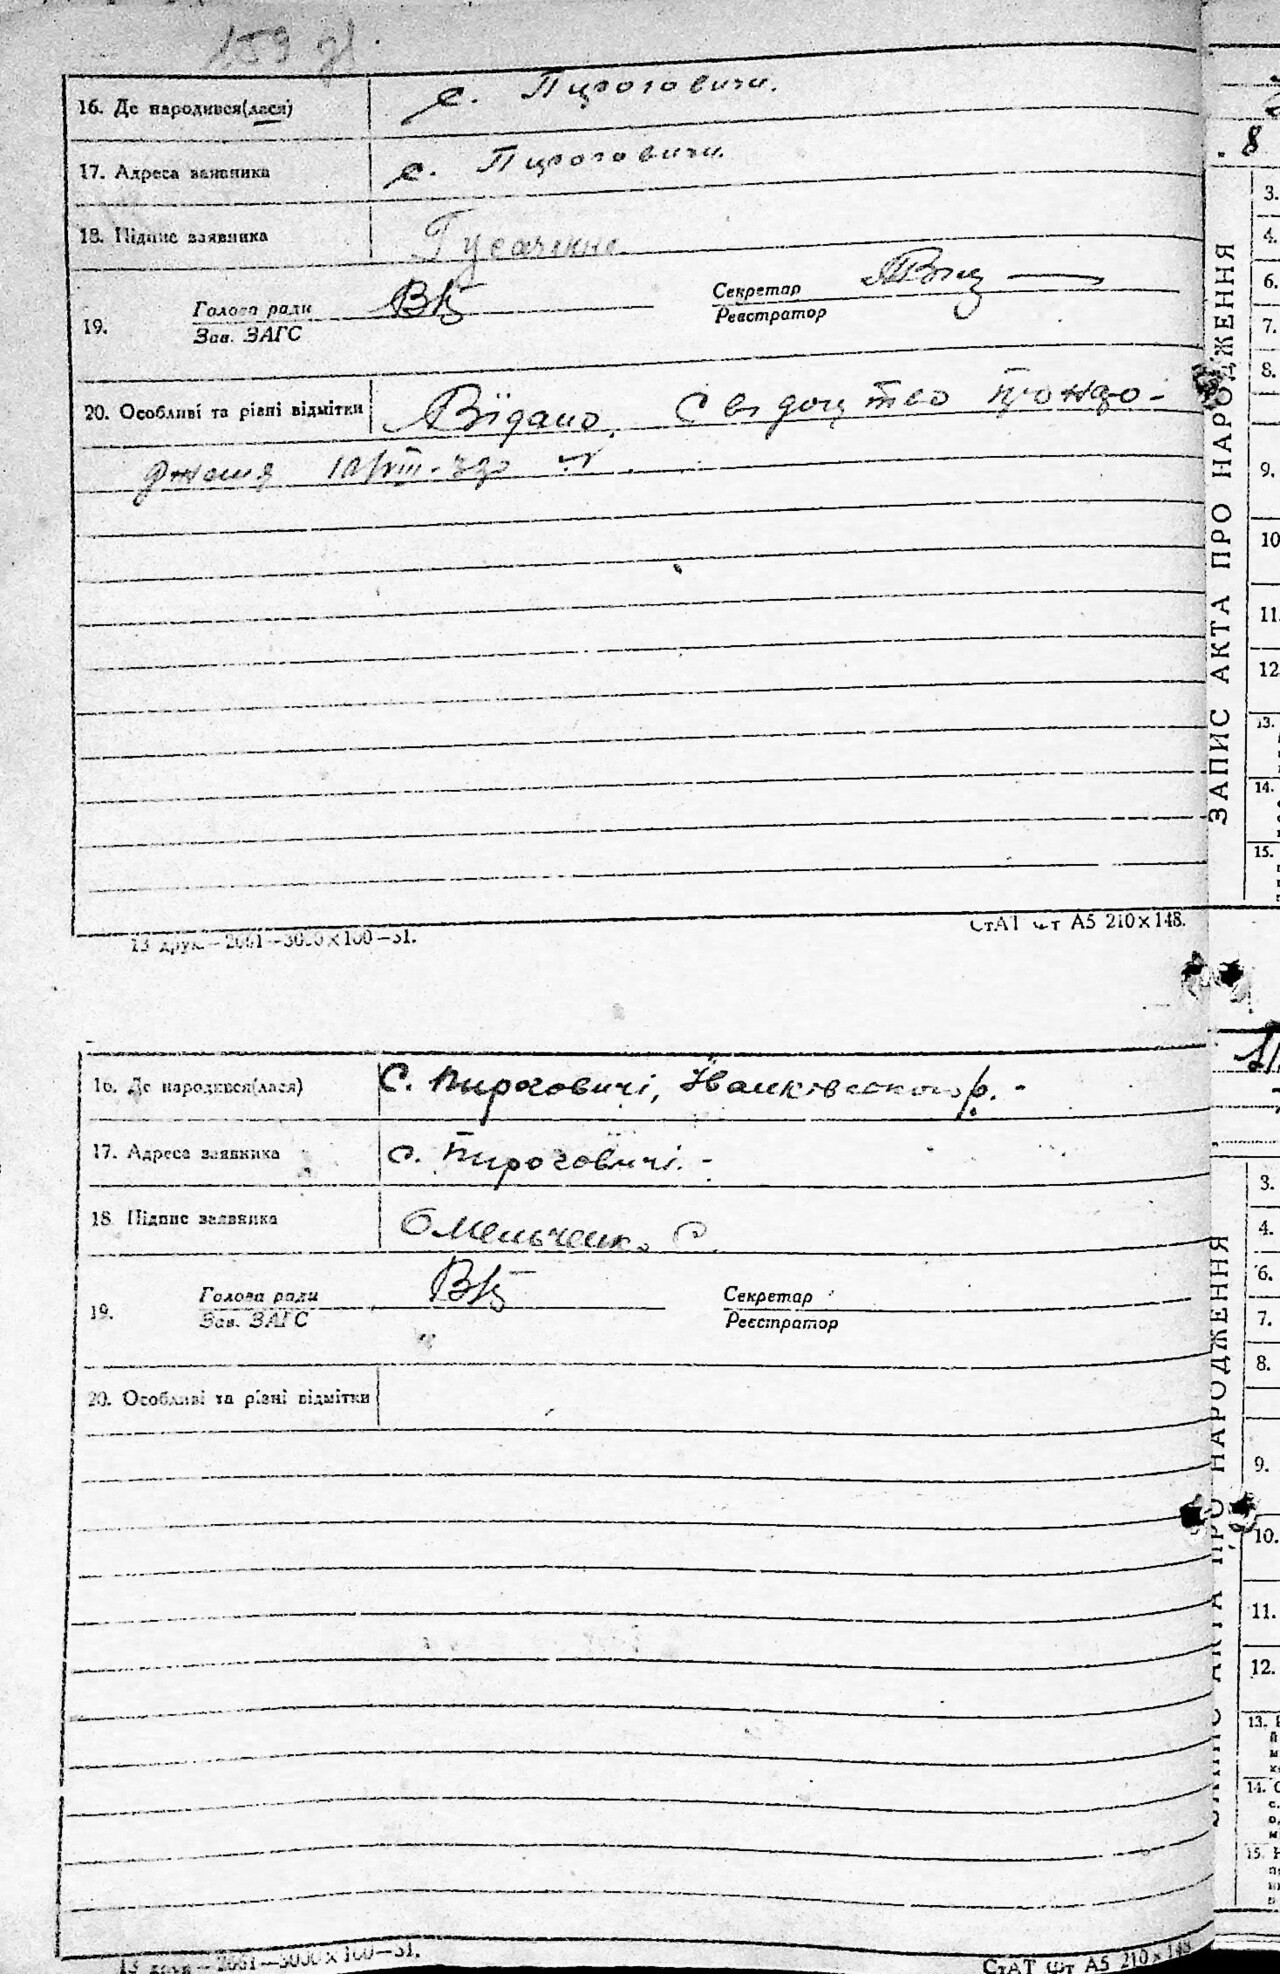 159
16. Де народився(лася) с. Пироговичи.
17. Адреса заявника с. Пироговичи.
18. Підпис заявника Гусаченко
19. Голова ради Секретар
Зав. ЗАГС Реєстратор
20. Особливі та різні відмітки Відано, Свидоцтво про наро-
дження
13 друк.—2661—3000×100—31. СтАТ Фт А5 210×148.
16. Де народився(лася) С. Пироговичі, Іванківського р. -
17. Адреса заявника с. Пироговичі. -
18 Підпис заявника Омельченко С.
19. Голова ради Секретар
Зав. ЗАГС Реєстратор
20. Особливі та різні відмітки
13 друк—2661—3000×100—31. СтАТ Фт А5 210×148
8
ЗАПИС АКТА ПРО НАРОДЖЕННЯ
3.
4.
6.
7.
8.
9.
10
11.
12
13.
14.
15.
ЗАПИС АКТА ПРО НАРОДЖЕННЯ
3.
4.
6.
7.
8.
9.
10.
11.
12.
13.
14.
15.